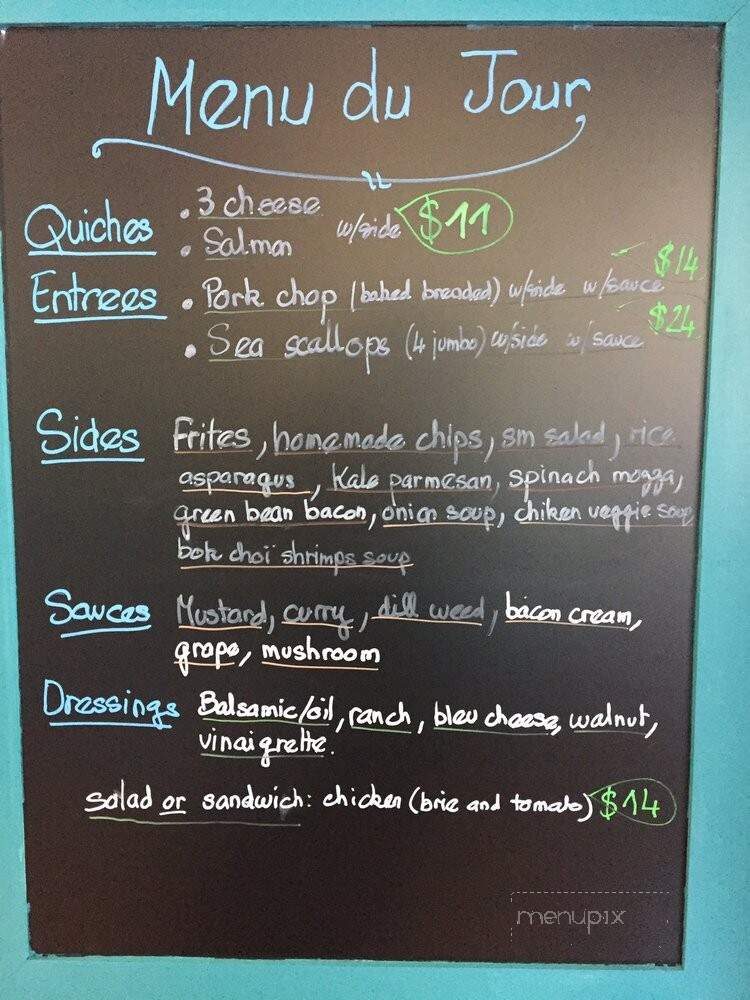 Menu du Jour
Quiches • 3 cheese w/side $11
• Salmon
$14
Entrees • Pork chop (baked breaded) w/side w/sauce
$24
• Sea scallops (4 jumbo) w/side w/sauce
Sides Frites, homemade chips, sm salad, rice
asparagus, Kale parmesan, spinach mozza,
green bean bacon, onion soup, chiken veggie soup
bok choï shrimps soup
Sauces Mustard, curry, dill weed, bacon cream,
grape, mushroom
Dressings Balsamic/oil, ranch, bleu cheese, walnut,
vinaigrette.
salad or sandwich: chicken (brie and tomato) $14
menupix